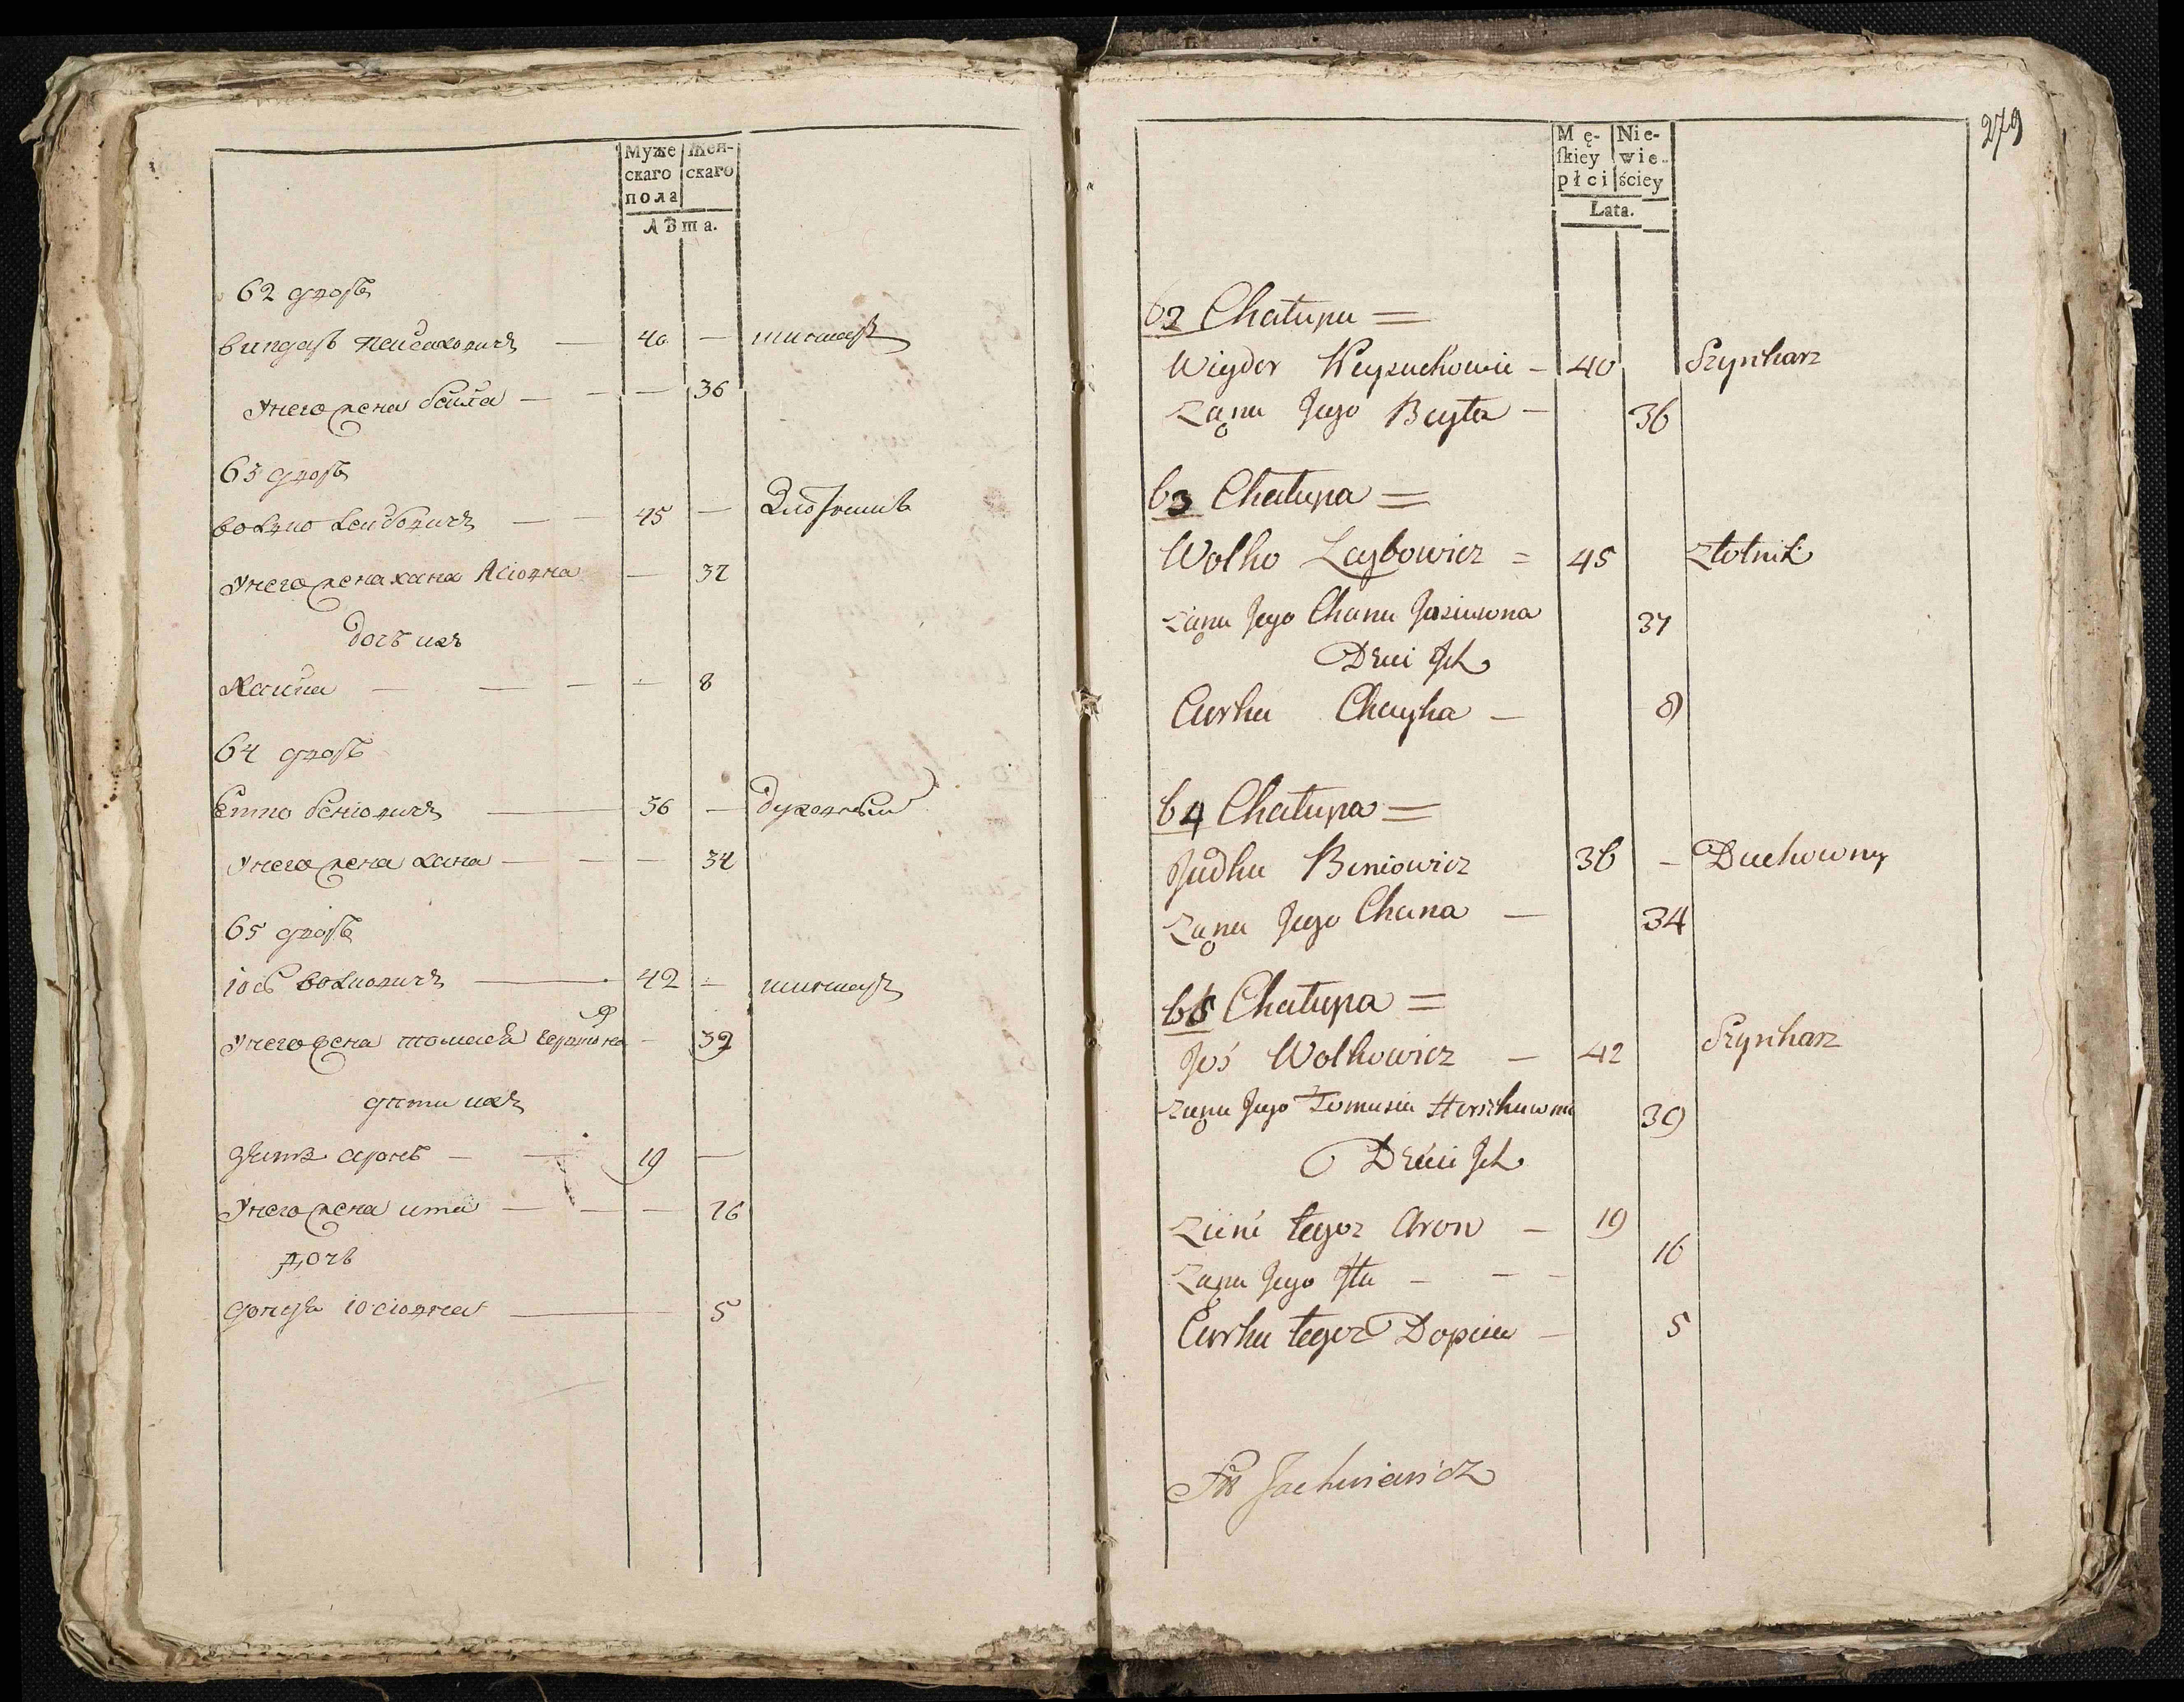 Муже Жен-
скаго скаго
пола
Лѣта.
62 дворъ
вигдоръ пейсаховичъ — 40 — шинкаръ
У него жена бейла — — — 36
63 дворъ
волко лейбовичъ — — 45 — Злотникъ
У него жена хана Асіовна — 37
дочь ихъ
Хайка — — — — 8
64 дворъ
беніовичъ — 36 — духовный
У него жена хана — — — 34
65 дворъ
іосъ волковичъ — 42 — шинкаръ
У него жена томася — 39
дѣти ихъ
аронъ — — 19 —
У него жена ита — — — 16
дочь
іосіовна — 5
279
Mę- Nie-
ſkiey wie-
płci ściey
Lata.
62 Chałupa =
Wigdor Peysachowic — 40 Szynkarz
Żona Jego Beyła — 36
63 Chałupa =
Wolko Leybowicz = 45 Złotnik
Żona Jego Chana Josiowna 37
Dzieci Ich
Curka Chayka — 8
64 Chałupa =
Judka Beniowicz 36 — Duchowny
Żona Jego Chana — 34
65 Chałupa =
Joś Wolkowicz — 42 Szynkarz
Żona Jego Tomasia Herszkowna 39
Dzieci Ich
Zięć tegoz Aron — 19
Żona Jego Ita — — — 16
Curka tegoz — 5
Jachniewicz